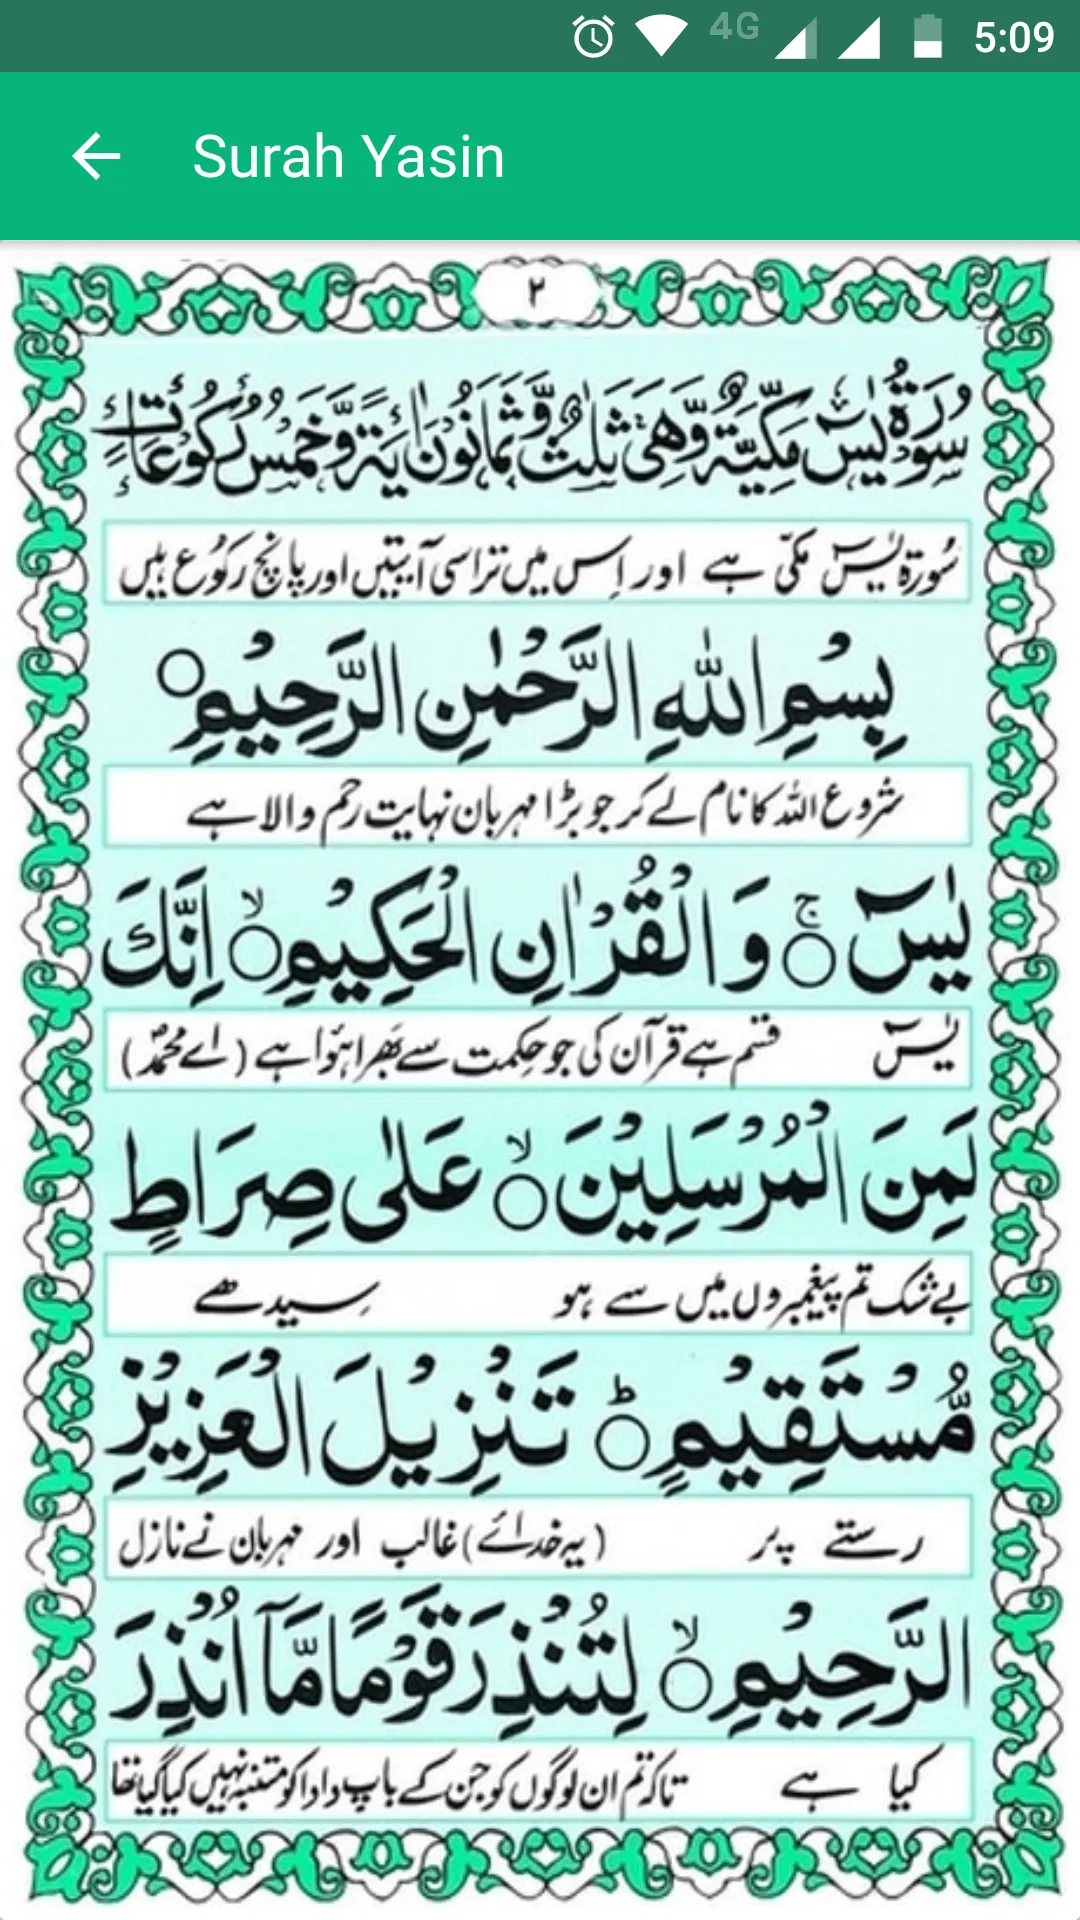 4G 5:09
Surah Yasin
٢
سُوْرَةُ يٰسٓ مَكِّيَّةٌ وَّهِيَ ثَلٰثٌ وَّثَمَانُوْنَ اٰيَةً وَّخَمْسُ رُكُوْعَاتٍ
سُورۃ یٰسٓ مکّی ہے اور اِس میں تراسی آیتیں اور پانچ رکُوع ہیں
بِسْمِ اللّٰهِ الرَّحْمٰنِ الرَّحِيْمِ
شروع اللہ کا نام لے کر جو بڑا مہربان نہایت رحم والا ہے
يٰسٓ ۚ وَالْقُرْاٰنِ الْحَكِيْمِ ۙ اِنَّكَ
یٰسٓ قسم ہے قرآن کی جو حِکمت سے بھَرا ہُوا ہے (اے محمدؐ)
لَمِنَ الْمُرْسَلِيْنَ ۙ عَلٰى صِرَاطٍ
بےشک تم پیغمبروں میں سے ہو سِیدھے
مُّسْتَقِيْمٍ ؕ تَنْزِيْلَ الْعَزِيْزِ
رستے پر (یہ خدائے) غالب اور مہربان نے نازل
الرَّحِيْمِ ۙ لِتُنْذِرَ قَوْمًا مَّآ اُنْذِرَ
کیا ہے تاکہ تم ان لوگوں کو جن کے باپ دادا کو متنبہ نہیں کیا گیا تھا